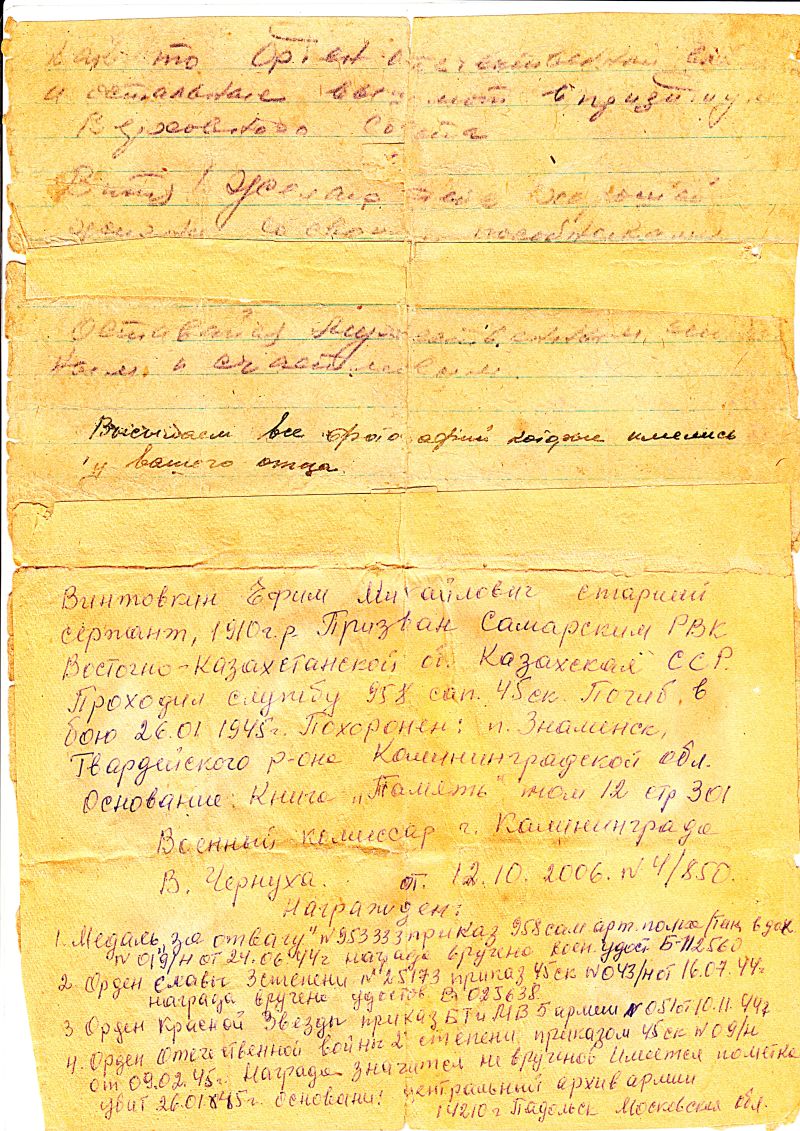 как то Орден отечественной
и остальные в президиум
Верховного Совета
Витя! Желаю тебе
со своими
Оставайся мужественным,
и счастливым
Высылаем все фотографий которые имелись
у вашего отца.
Винтовкин Ефим Михайлович старший
сержант, 1910г.р Призван Самарским РВК
Восточно-Казахстанской об. Казахская ССР.
Проходил службу 958 сап. 45ск. Погиб в
бою 26.01 1945г. Похоронен: п. Знаменск,
Гвардейского р-она Калининградской обл.
Основание: Книга „Память" том 12 стр 301
Военный комиссар г. Калининграда
В. Чернуха. от. 12.10.2006. N 4/850.
Награжден:
1. Медаль „за отвагу" N 953333 приказ 958 сам арт. полка
N 019/н от 24.06.44г награда вручена удост Б-112560
2 Орден славы 3 степени N 25173 приказ 45ск N 043/н от 16.07.44г
награда вручена удостов 025638
3 Орден Красной Звезды приказ БТ и МВ 5 армии N 051 от 10.11.44г
4. Орден Отечественной войны 2 степени приказом 45ск N 09/н
от 09.02.45г. Награда значится не вручёнов имеется пометка
убит 26.01.45г. Основани: центральный архив армии
14210 г Падольск Московская обл.